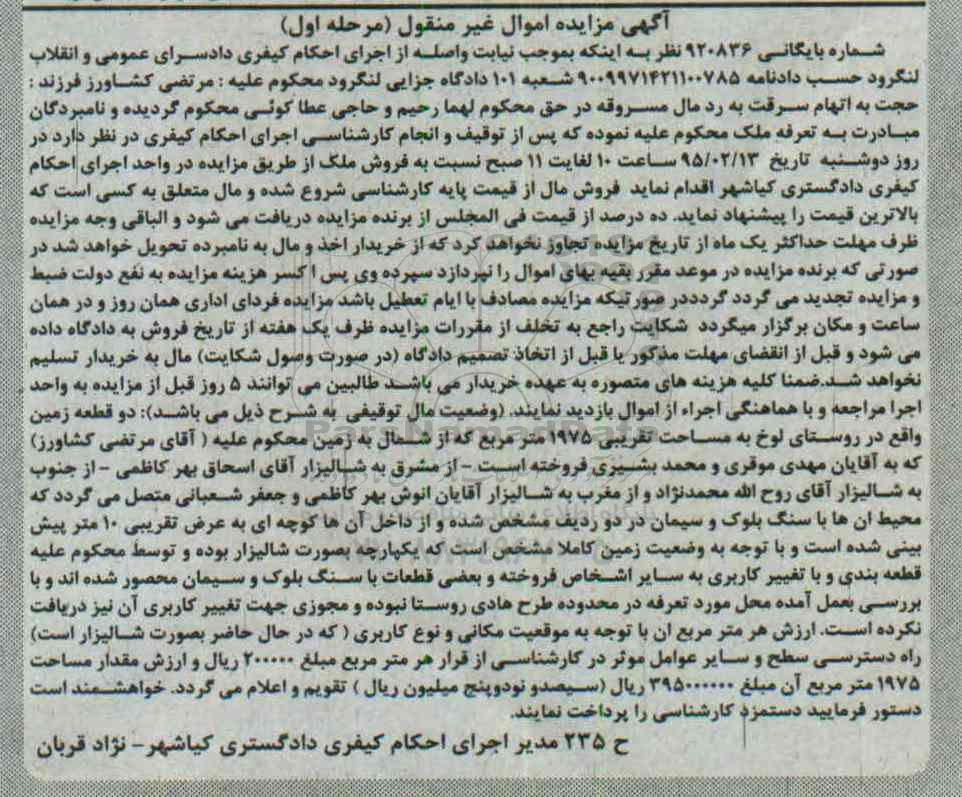 آگهی مزایده اموال غیر منقول (مرحله اول)
شماره بایگانی ۹۲۰۸۳۶ نظر به اینکه بموجب نیابت واصله از اجرای احکام کیفری دادسرای عمومی و انقلاب
لنگرود حسب دادنامه ۹۰۰۹۹۷۱۴۲۱۱۰۰۷۸۵ شعبه ۱۰۱ دادگاه جزایی لنگرود محکوم علیه : مرتضی کشاورز فرزند :
حجت به اتهام سرقت به رد مال مسروقه در حق محکوم لهما رحیم و حاجی عطا کوئی محکوم گردیده و نامبردگان
مبادرت به تعرفه ملک محکوم علیه نموده که پس از توقیف و انجام کارشناسی اجرای احکام کیفری در نظر دارد در
روز دوشنبه تاریخ ۹۵/۰۲/۱۳ ساعت ۱۰ لغایت ۱۱ صبح نسبت به فروش ملک از طریق مزایده در واحد اجرای احکام
کیفری دادگستری کیاشهر اقدام نماید فروش مال از قیمت پایه کارشناسی شروع شده و مال متعلق به کسی است که
بالاترین قیمت را پیشنهاد نماید. ده درصد از قیمت فی المجلس از برنده مزایده دریافت می شود و الباقی وجه مزایده
ظرف مهلت حداکثر یک ماه از تاریخ مزایده تجاوز نخواهد کرد که از خریدار اخذ و مال به نامبرده تحویل خواهد شد در
صورتی که برنده مزایده در موعد مقرر بقیه بهای اموال را نپردازد سپرده وی پس ا کسر هزینه مزایده به نفع دولت ضبط
و مزایده تجدید می گردد گردددر صورتیکه مزایده مصادف با ایام تعطیل باشد مزایده فردای اداری همان روز و در همان
ساعت و مکان برگزار میگردد شکایت راجع به تخلف از مقررات مزایده ظرف یک هفته از تاریخ فروش به دادگاه داده
می شود و قبل از انقضای مهلت مذکور یا قبل از اتخاذ تصمیم دادگاه (در صورت وصول شکایت) مال به خریدار تسلیم
نخواهد شد.ضمنا کلیه هزینه های متصوره به عهده خریدار می باشد طالبین می توانند ۵ روز قبل از مزایده به واحد
اجرا مراجعه و با هماهنگی اجراء از اموال بازدید نمایند. (وضعیت مال توقیفی به شرح ذیل می باشد): دو قطعه زمین
واقع در روستای لوخ به مساحت تقریبی ۱۹۷۵ متر مربع که از شمال به زمین محکوم علیه ( آقای مرتضی کشاورز)
که به آقایان مهدی موقری و محمد بشیری فروخته است - از مشرق به شالیزار آقای اسحاق بهر کاظمی - از جنوب
به شالیزار آقای روح الله محمدنژاد و از مغرب به شالیزار آقایان انوش بهر کاظمی و جعفر شعبانی متصل می گردد که
محیط ان ها با سنگ بلوک و سیمان در دو ردیف مشخص شده و از داخل آن ها کوچه ای به عرض تقریبی ۱۰ متر پیش
بینی شده است و با توجه به وضعیت زمین کاملا مشخص است که یکپارچه بصورت شالیزار بوده و توسط محکوم علیه
قطعه بندی و با تغییر کاربری به سایر اشخاص فروخته و بعضی قطعات با سنگ بلوک و سیمان محصور شده اند و با
بررسی بعمل آمده محل مورد تعرفه در محدوده طرح هادی روستا نبوده و مجوزی جهت تغییر کاربری آن نیز دریافت
نکرده است. ارزش هر متر مربع ان با توجه به موقعیت مکانی و نوع کاربری ( که در حال حاضر بصورت شالیزار است)
راه دسترسی سطح و سایر عوامل موثر در کارشناسی از قرار هر متر مربع مبلغ ۲۰۰۰۰۰ ریال و ارزش مقدار مساحت
۱۹۷۵ متر مربع آن مبلغ ۳۹۵۰۰۰۰۰۰ ریال (سیصدو نودوپنج میلیون ریال ) تقویم و اعلام می گردد. خواهشمند است
دستور فرمایید دستمزد کارشناسی را پرداخت نمایند.
ح ۲۳۵ مدیر اجرای احکام کیفری دادگستری کیاشهر- نژاد قربان